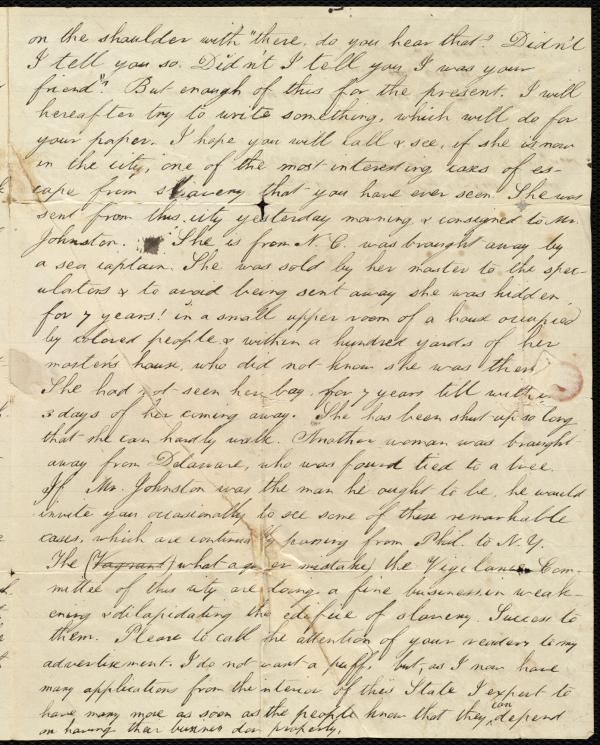 on the shoulder with "there, do you hear that? Didn't
I tell you so. Didn't I tell you I was your
friend"? But enough of this for the present. I will
hereafter try to write something, which will do for
your paper. I hope you will call & see, if she is now
in the city, one of the most interesting cases of es-
cape from slavery that you have ever seen. She was
sent from this city yesterday morning, & consigned to Mr.
Johnston. She is from N. C. was brought away by
a sea captain. She was sold by her master to the spec-
ulators & to avoid being sent away she was hidden,
for 7 years! in a small upper room of a house occupied
by colored people & within a hundred yards of her
master's house, who did not know she was there
She had not seen her boy, for 7 years till within
3 days of her coming away. She has been shut up so long
that she can hardly walk. Another woman was brought
away from Delaware, who was found tied to a tree.
If Mr. Johnston was the man he ought to be, he would
invite you occasionally to see some of these remarkable
cases, which are continually passing from Phil. to N. Y.
The (Vagrant, what a queer mistake) the Vigilance Com-
mittee of this city are doing a fine business in weak-
ening & dilapidating the edifice of slavery. Success to
them. Please to call the attention of your readers to my
advertisement. I do not want a puff, but, as I now have
many applications from the interior of this State I expect to
have many more as soon as the people know that they can depend
on having their business done properly.